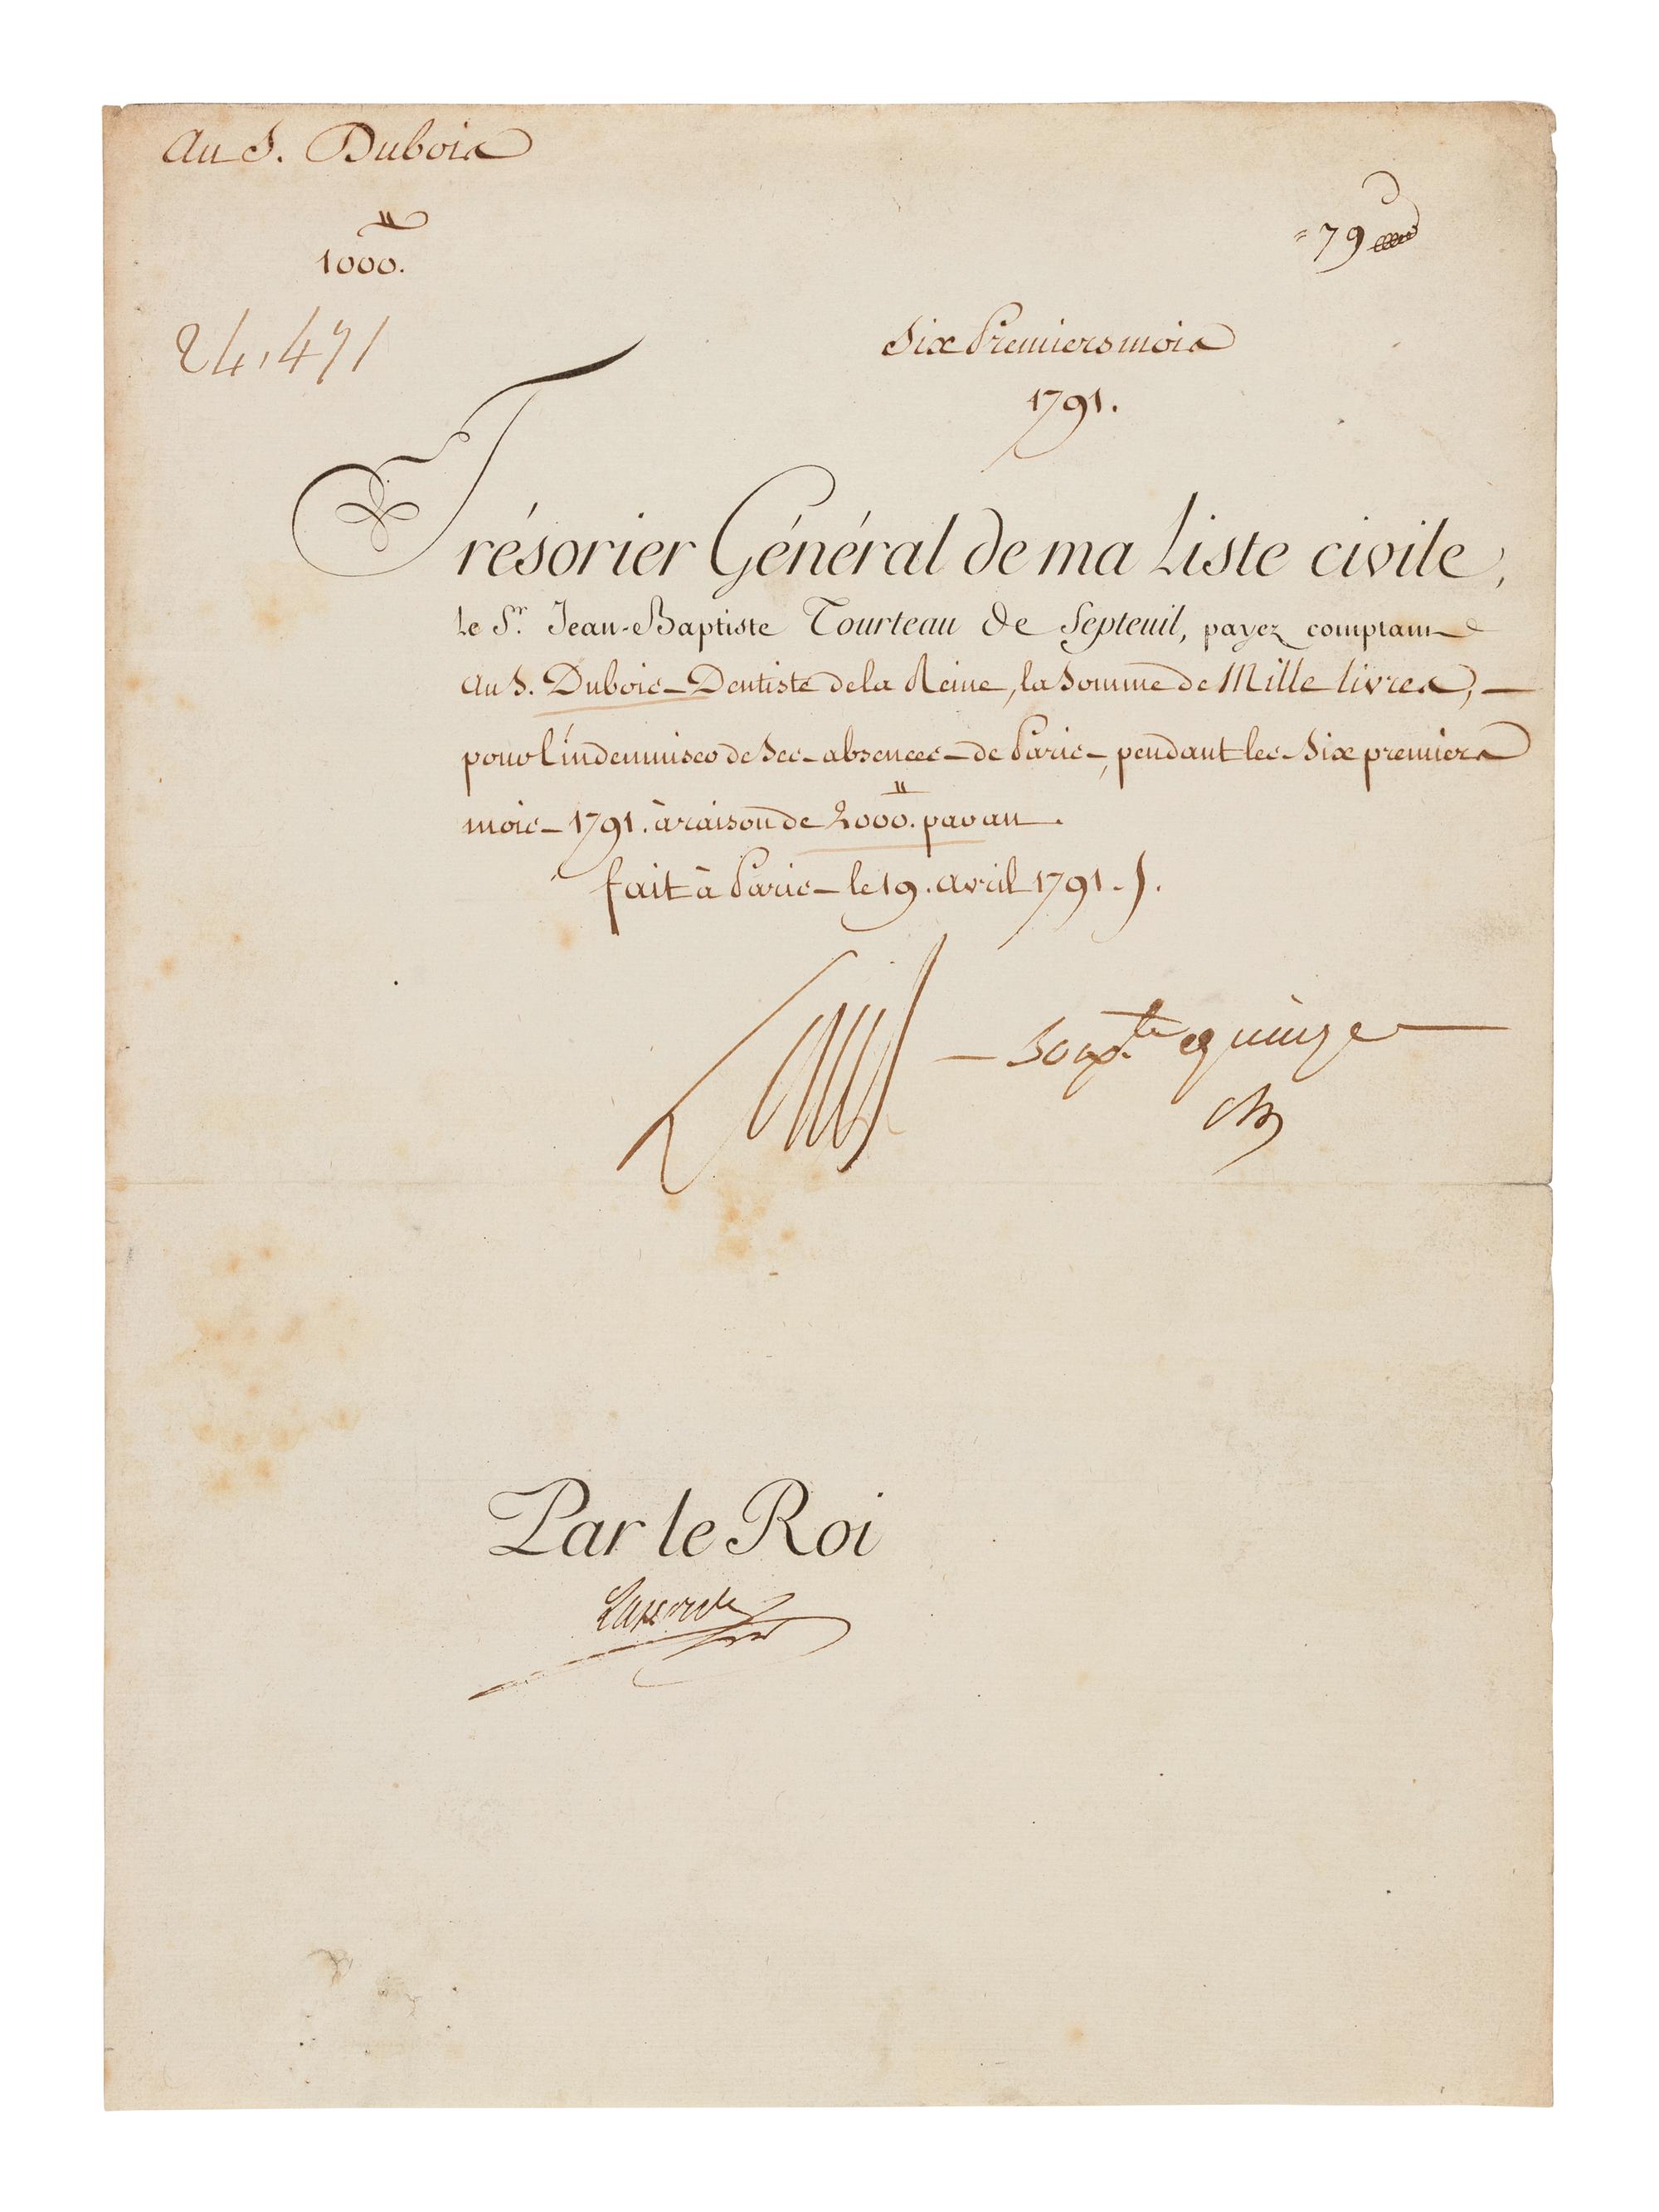 Au S. Dubois
1000.
79
24,471
Six Premiers mois
1791.
Trésorier Général de ma Liste civile,
le Sr. Jean-Baptiste Tourteau de Septeuil, payez comptant
Au S. Dubois Dentiste de la Reine, la Somme de Mille livres,
pour l'indemniser de Ses absences de Paris, pendant les Six premiers
mois 1791. à raison de 2000. par an.
fait à Paris le 19. avril 1791.
Louis
quinze
Par le Roi
Laporte